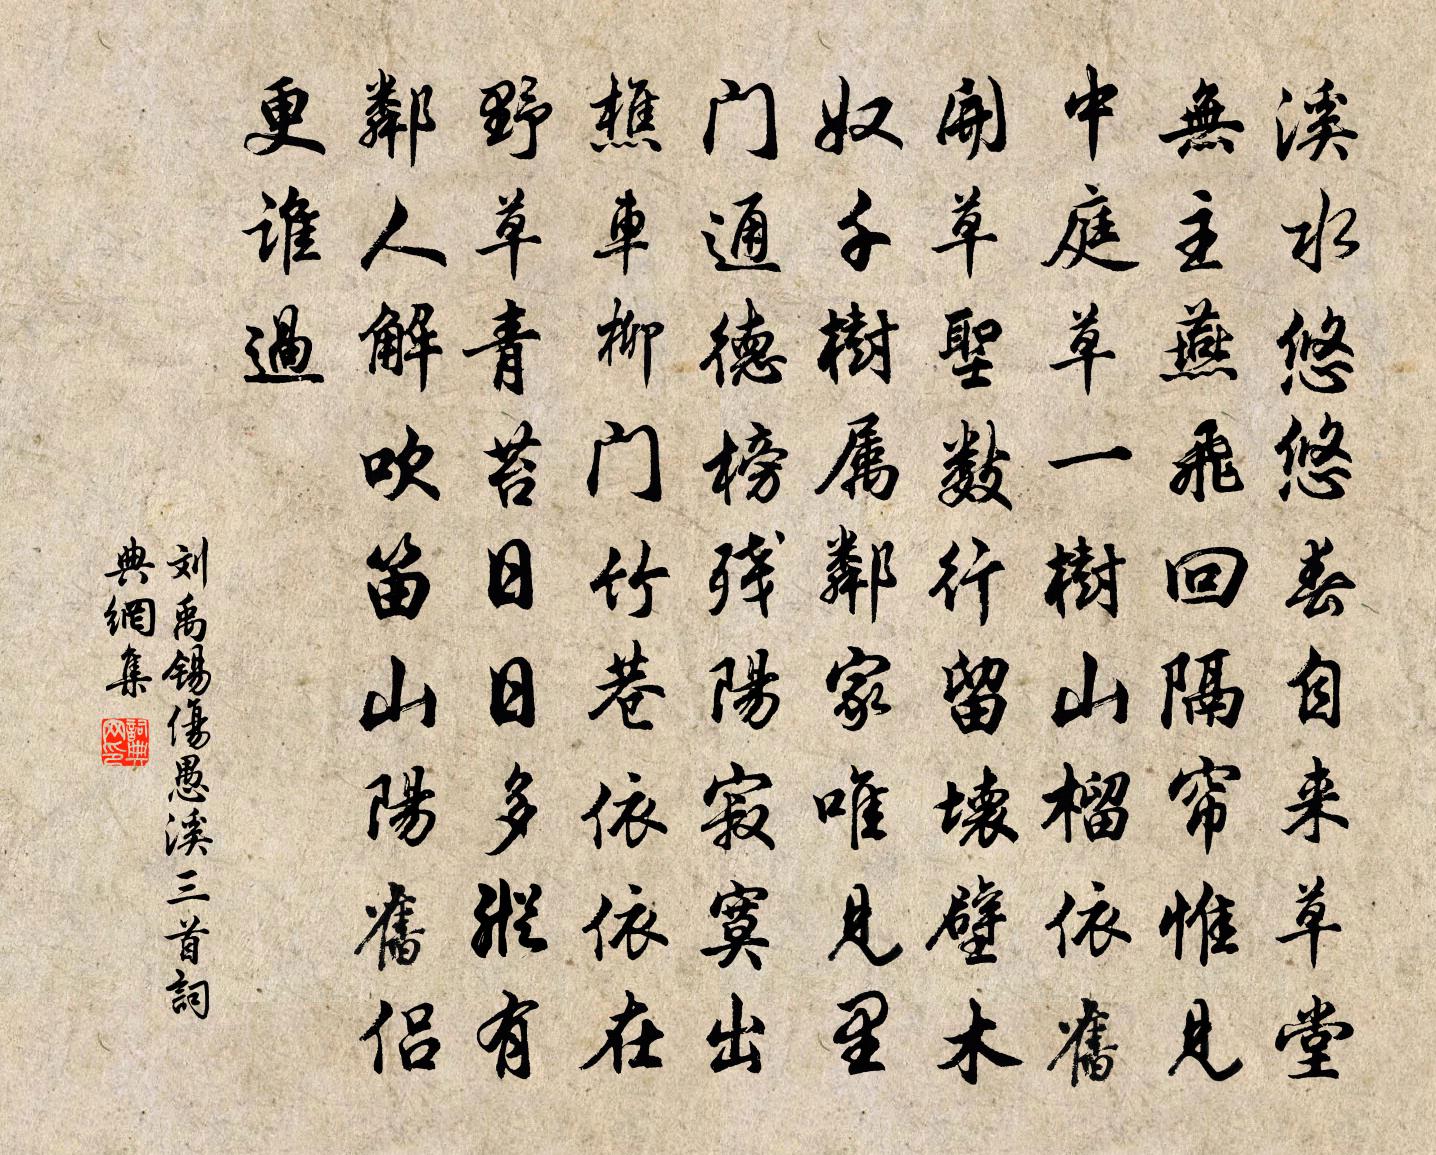 溪水悠悠春自来草堂
無主燕飛回隔帘惟見
中庭草一樹山榴依舊
開草聖數行留壞壁木
奴千樹属鄰家唯見里
门通德榜残陽寂寞出
樵車柳门竹巷依依在
野草青苔日日多縱有
鄰人解吹笛山陽舊侣
更谁過
刘禹锡傷愚溪三首詞
典網集
詞典
网印